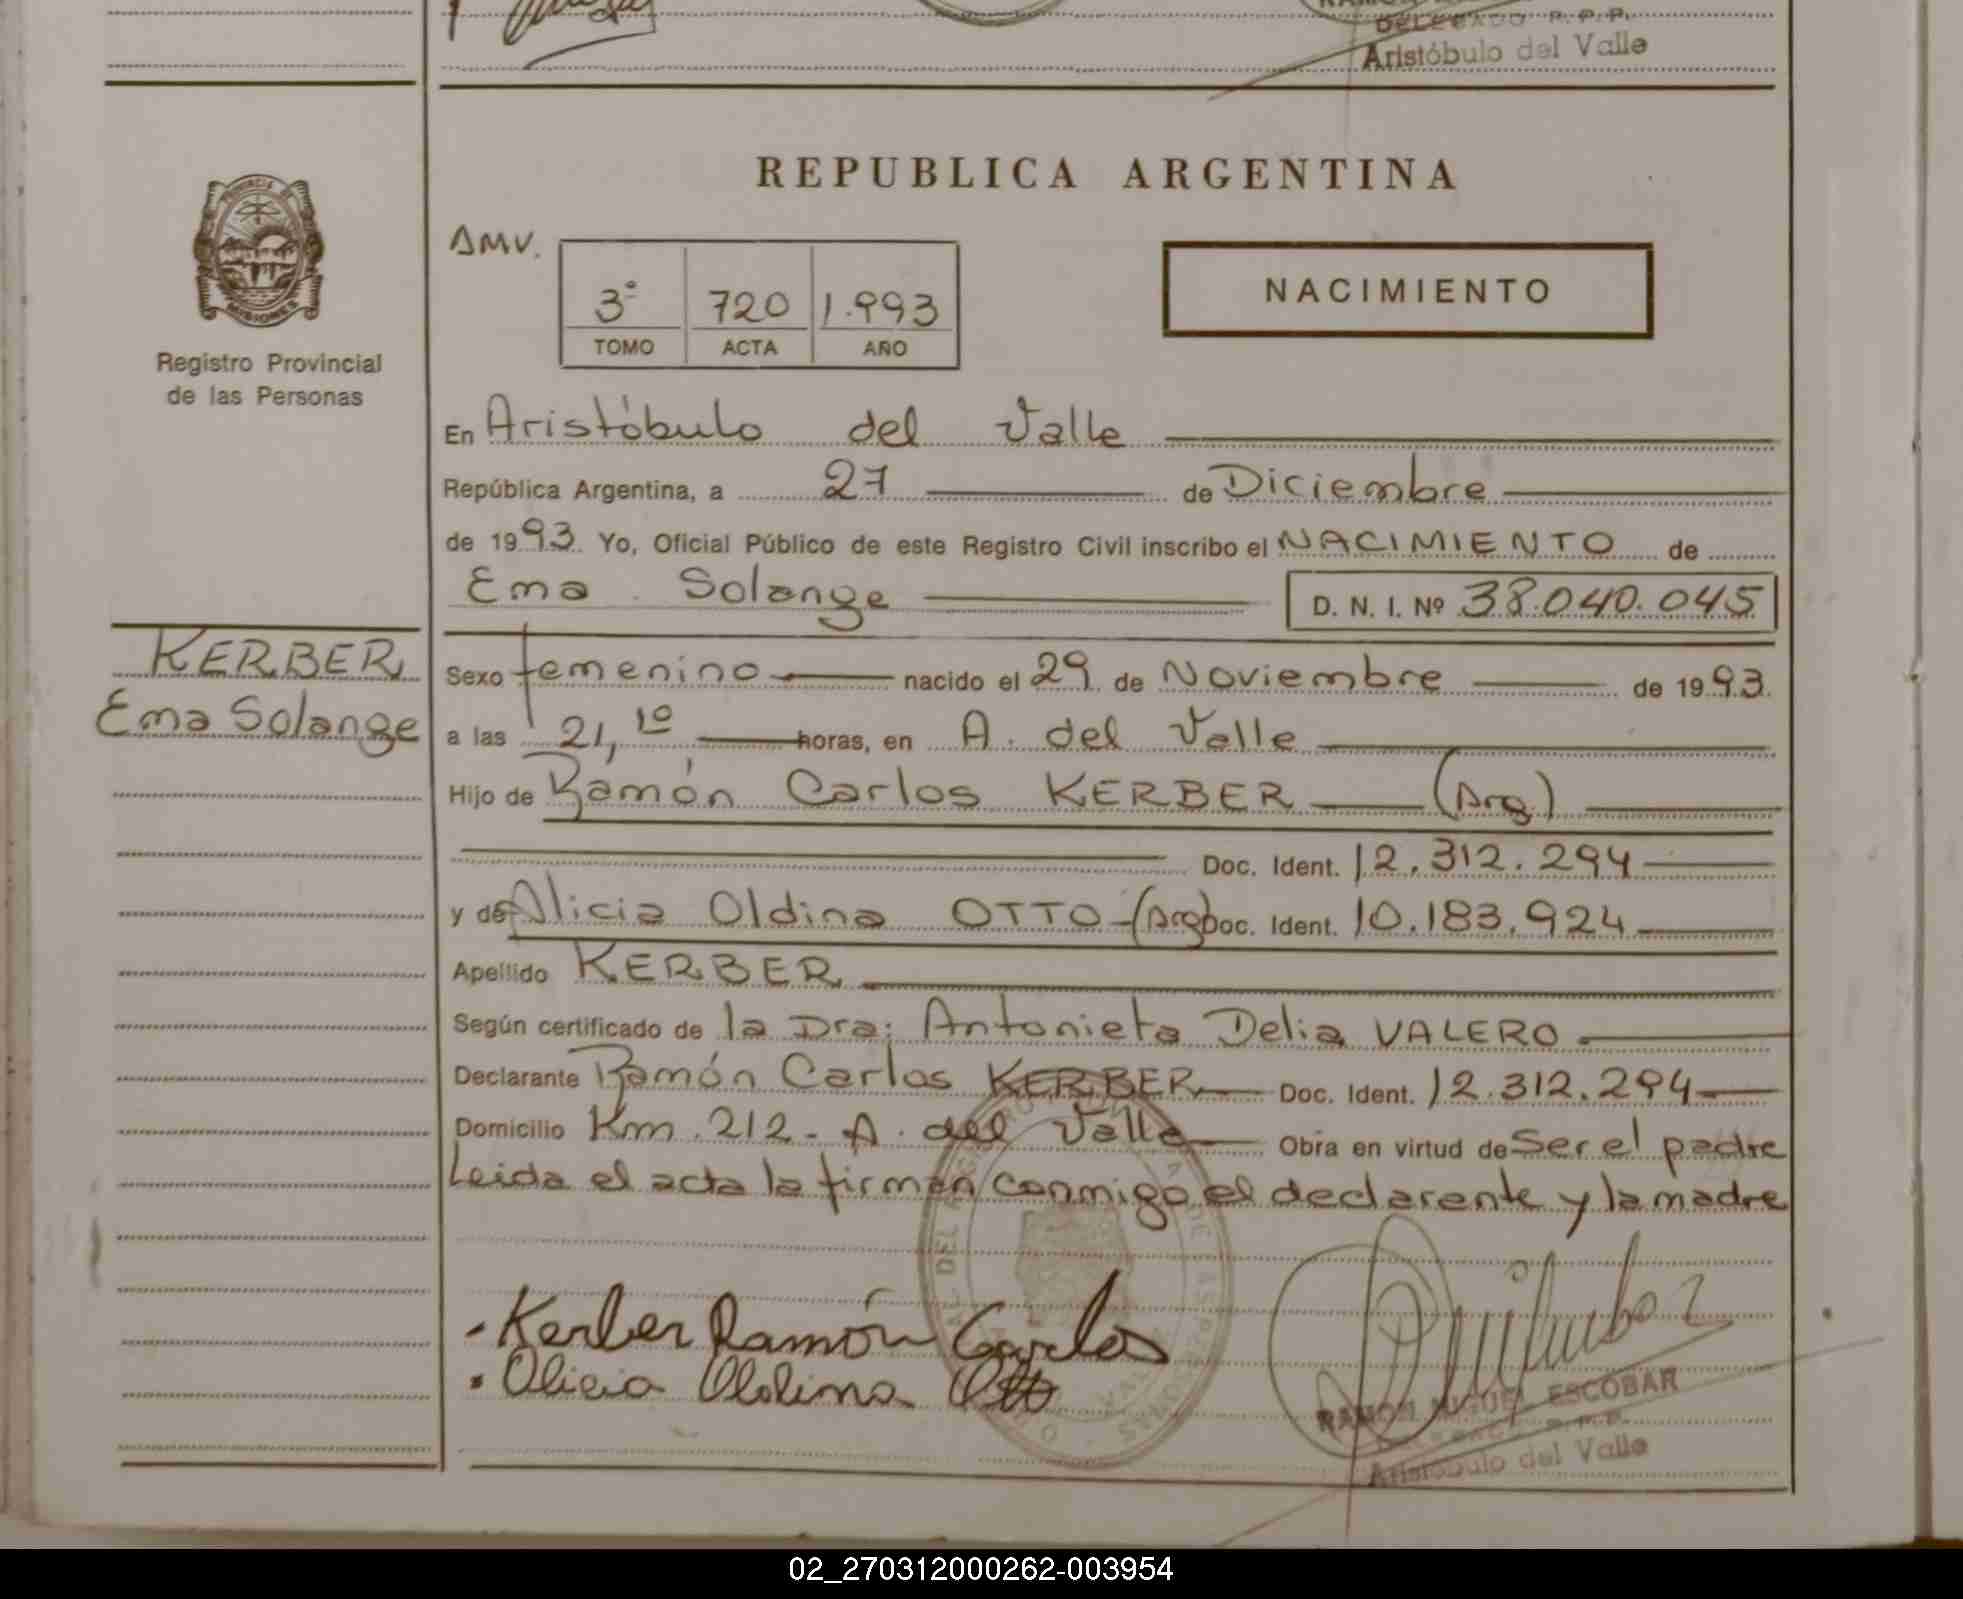 DELEGADO R.P.P.
Aristóbulo del Valle
REPUBLICA ARGENTINA
PROVINCIA DE
MISIONES
Registro Provincial
de las Personas
AMV.
3º 720 1.993
TOMO ACTA AÑO
NACIMIENTO
En Aristóbulo del Valle
República Argentina, a 27 de Diciembre
de 1993. Yo, Oficial Público de este Registro Civil inscribo el NACIMIENTO de
Ema Solange D. N. I. Nº 38.040.045
KERBER
Ema Solange
Sexo femenino nacido el 29 de Noviembre de 1993.
a las 21,10 horas, en A. del Valle
Hijo de Ramón Carlos KERBER (Arg)
Doc. Ident. 12.312.294
y de Alicia Oldina OTTO-(Arg) Doc. Ident. 10.183.924
Apellido KERBER
Según certificado de la Dra: Antonieta Delia VALERO
Declarante Ramón Carlos KERBER Doc. Ident. 12.312.294
Domicilio Km. 212- A. del Valle Obra en virtud de Ser el padre
Leida el acta la firman conmigo el declarante y la madre
Kerber Ramón Carlos
Alicia Oldina Otto
RAMON MIGUEL ESCOBAR
Aristóbulo del Valle
02_270312000262-003954